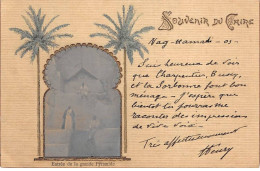 SOUVENIR DU CAIRE
Nag-Hamadi - 05 -
Suis heureux de voir
que Charpentier, Buoy,
et la Sorbonne font bon
ménage - J'espère que
bientôt tu pourras me
raconter des impressions
de vive voix -
Très affectueusement
Entrée de la grande Pyramide